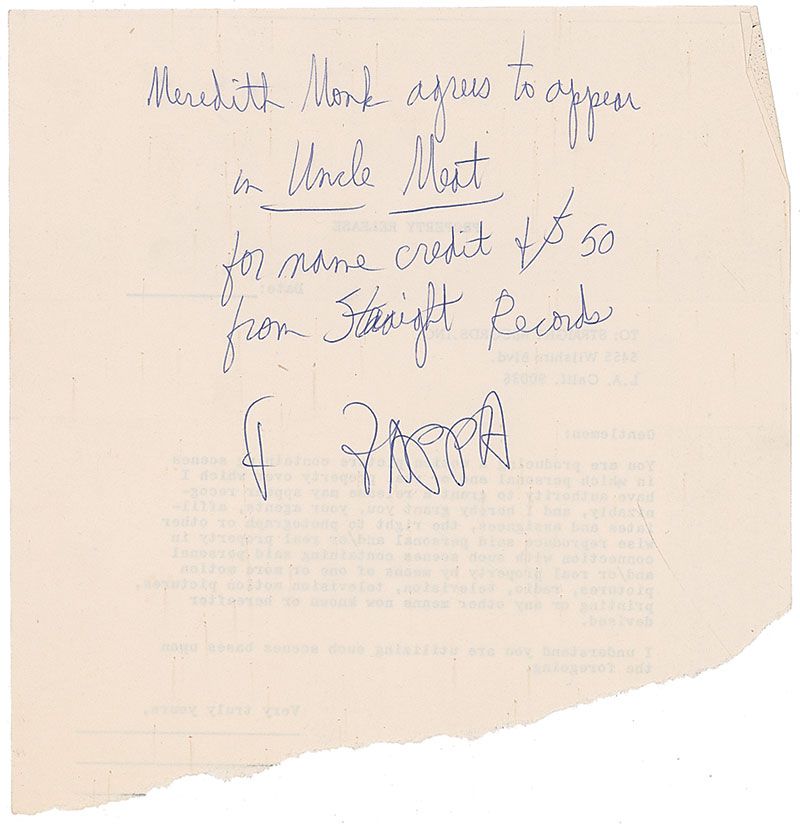 Meredith Monk agrees to appear
in Uncle Meat
for name credit + $ 50
from Straight Records
F ZAPPA
PROPERTY RELEASE
Date:
TO: STRAIGHT RECORDS, INC.
5455 Wilshire Blvd.
L.A. Calif. 90036
Gentlemen:
You are producing a motion picture containing scenes
in which personal and/or real property over which I
have authority to grant a release may appear recog-
nizably, and I hereby grant you, your agents, affili-
ates and assignees, the right to photograph or other
wise reproduce said personal and/or real property in
connection with such scenes containing said personal
and/or real property by means of one or more motion
pictures, radio, television, television motion pictures,
printing or any other means now known or hereafter
devised.
I understand you are utilizing such scenes bases upon
the foregoing.
Very truly yours,